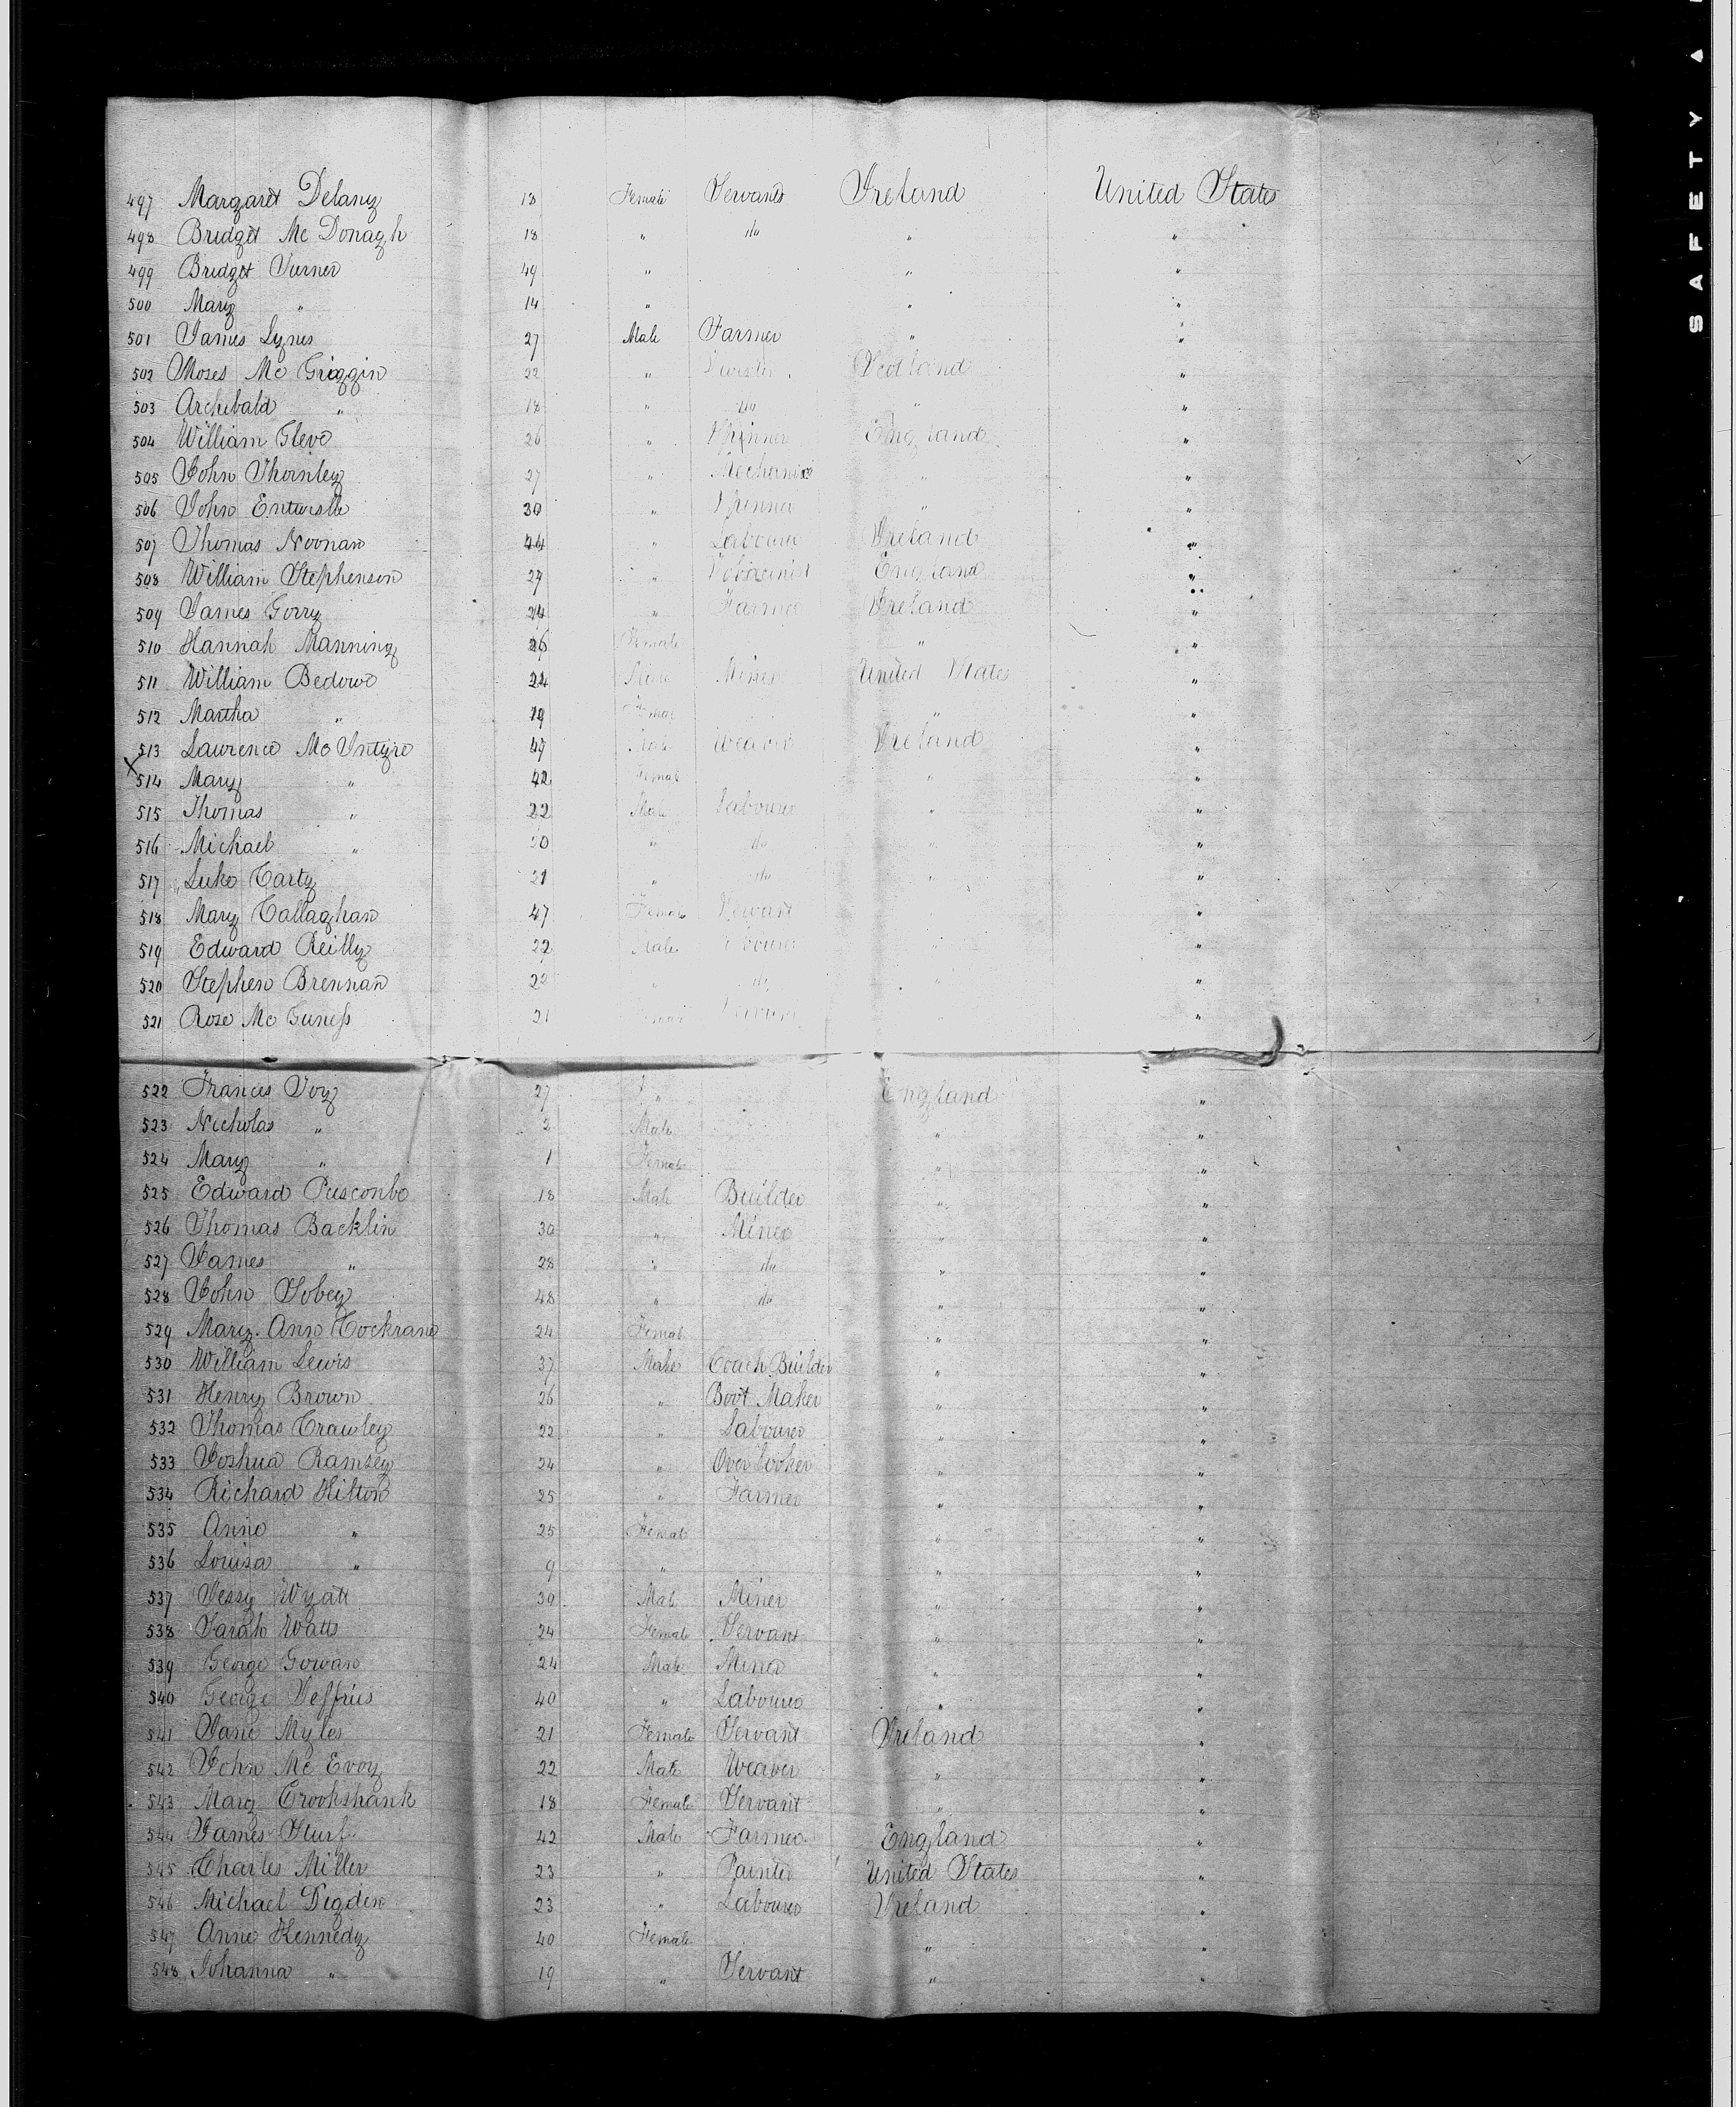 SAFETY
497 Margaret Delany 18 Female Servant Ireland United States
498 Bridget Mc Donagh 18 " do " "
499 Bridget Turner 49 " " "
500 Mary " 14 " " "
501 James Lynes 27 Male Farmer " "
502 Moses Mc Griggin 22 " Scotland "
503 Archibald " 18 " do " "
504 William Gleve 26 " Spinner England "
505 John Thornley 27 " Mechanic " "
506 John Entwistle 30 " Spinner " "
507 Thomas Noonan 44 " Labourer Ireland "
508 William Stephenson 27 " Tobacconist England "
509 James Gorry 24 " Farmer Ireland "
510 Hannah Manning 26 Female " "
511 William Bedowe 24 Male Miner United States "
512 Martha " 19 Female " "
513 Laurence Mc Intyre 47 Male Weaver Ireland "
X 514 Mary " 42 Female " "
515 Thomas " 22 Male Labourer " "
516 Michael " 20 " do " "
517 Luke Carty 21 " do " "
518 Mary Callaghan 47 Female Servant "
519 Edward Reilly 22 Male Labourer " "
520 Stephen Brennan 22 " do " "
521 Rose Mc Guness 21 Female Servant " "
522 Frances Ivy 27 " England "
523 Nicholas " 2 Male " "
524 Mary " 1 Female " "
525 Edward Pusconbe 18 Male Builder " "
526 Thomas Backlin 30 " Miner " "
527 James " 28 " do " "
528 John Tobey 48 " do " "
529 Mary Ann Cockrane 24 Female " "
530 William Lewis 37 Male Coach Builder " "
531 Henry Brown 26 " Boot Maker " "
532 Thomas Crawley 22 " Labourer " "
533 Joshua Ramsey 24 " Over looker " "
534 Richard Hilton 25 " Farmer " "
535 Anne " 25 Female " "
536 Louisa " 9 " " "
537 Jessy Wyatt 39 Male Miner " "
538 Sarah Watts 24 Female Servant " "
539 George Gowan 24 Male Miner " "
540 George Jeffries 40 " Labourer " "
541 Jane Myles 21 Female Servant Ireland "
542 John Mc Evoy 22 Male Weaver " "
543 Mary Crookshank 18 Female Servant " "
544 James Sturf 42 Male Farmer England "
545 Charles Miller 23 " Painter United States "
546 Michael Digden 23 " Labourer Ireland "
547 Anne Kennedy 40 Female " "
548 Johanna " 19 " Servant " "